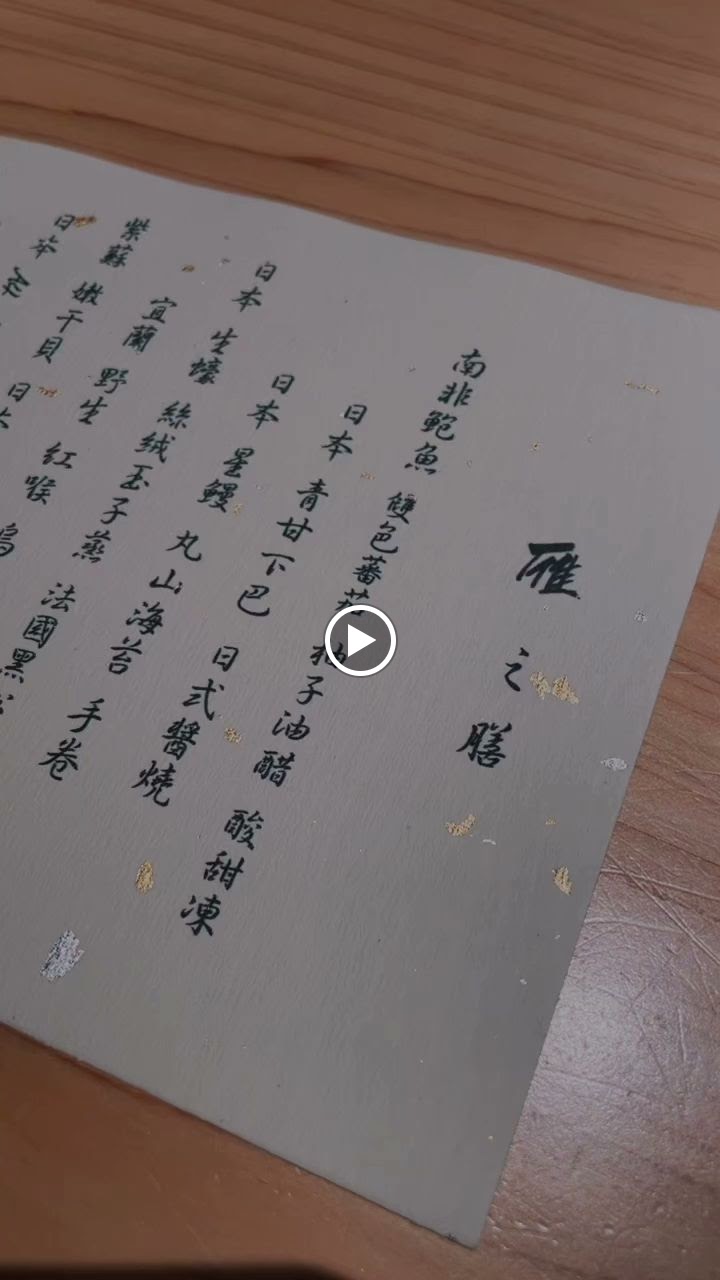 雁之膳
南非鮑魚 雙色蕃茄 柚子油醋 酸甜凍
日本 青甘下巴 日式醬燒
日本 星鰻 丸山海苔 手卷
日本 生蠔 絲絨玉子蒸 法國黑
宜蘭 野生 紅喉
紫蘇 嫩干貝 日本
日本